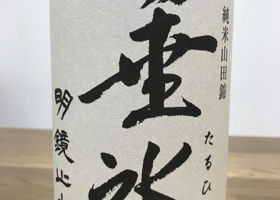 純米山田錦
たるひ
垂氷
明鏡止水